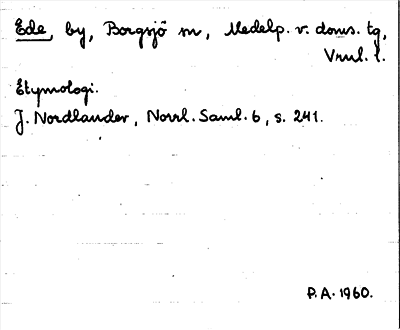 Ede, by, Borgsjö sn, Medelp. v. doms. tg,
l.
Etymologi.
J. Nordlander, Norrl. Saml. 6, s. 241.
P.A. 1960.